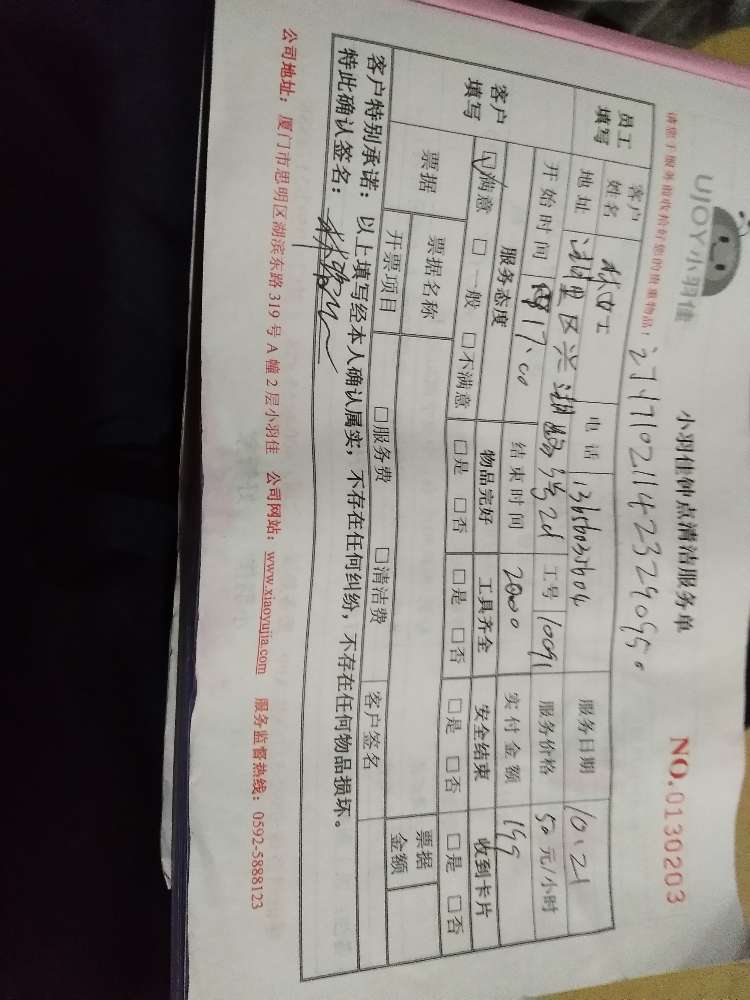 UJOY小羽佳
小羽佳钟点清洁服务单
NO.0130203
请您于服务前收拾好您的贵重物品!
员工填写
客户姓名 电话 服务日期 10.21
地址 湖里区兴湖路 工号 10091 服务价格 50元/小时
开始时间 17:00 结束时间 2000 实付金额 199
客户填写
服务态度 物品完好 工具齐全 安全结束 收到卡片
☑满意 □一般 □不满意 □是 □否 □是 □否 □是 □否 □是 □否
票据 票据名称 票据金额
开票项目 □服务费 □清洁费 客户签名
客户特别承诺:以上填写经本人确认属实,不存在任何纠纷,不存在任何物品损坏。
特此确认签名:
公司地址:厦门市思明区湖滨东路319号A幢2层小羽佳 公司网站:www.xiaoyujia.com 服务监督热线:0592-5888123